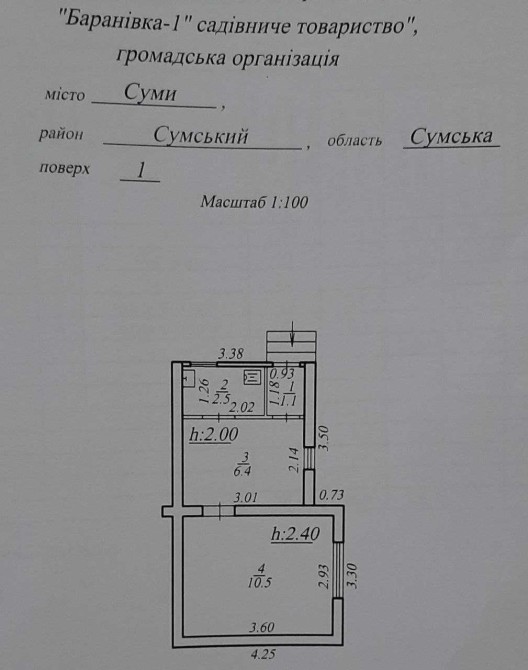 "Баранівка-1" садівниче товариство",
громадська організація
місто Суми ,
район Сумський , область Сумська
поверх 1
Масштаб 1:100
3.38
0.93
1.26
2
2.5
1.18
1
1.1
2.02
h:2.00
3
6.4
2.14
3.50
3.01
0.73
h:2.40
4
10.5
2.93
3.30
3.60
4.25